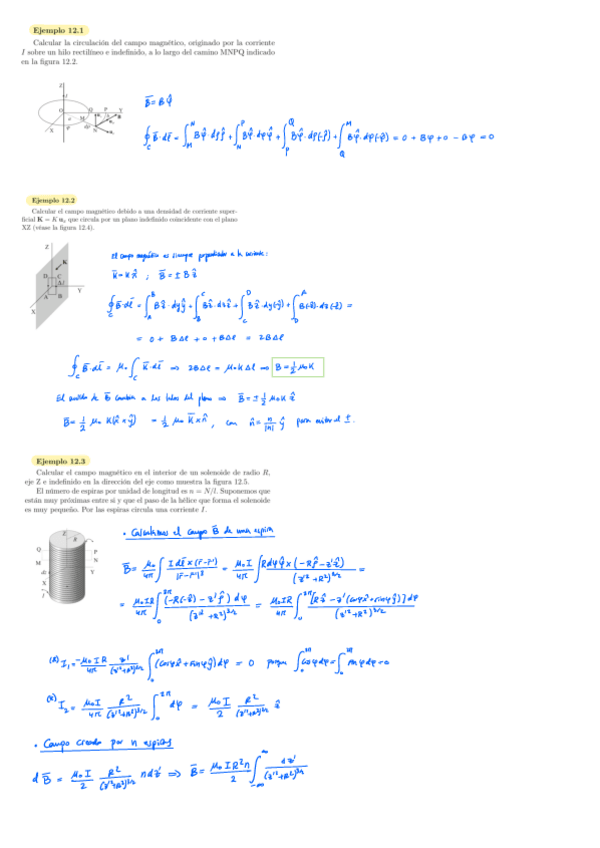 Ejemplo 12.1
Calcular la circulación del campo magnético, originado por la corriente
I sobre un hilo rectilíneo e indefinido, a lo largo del camino MNPQ indicado
en la figura 12.2.
B̄ = B φ̂
∮_C B̄·dl̄ = ∫_M^N Bφ̂·dρ ρ̂ + ∫_N^P Bφ̂·dφ φ̂ + ∫_P^Q Bφ̂·dρ(-ρ̂) + ∫_Q^M Bφ̂·dφ(-φ̂) = 0 + Bφ + 0 - Bφ = 0
Ejemplo 12.2
Calcular el campo magnético debido a una densidad de corriente super-
ficial K = K u_x que circula por un plano indefinido coincidente con el plano
XZ (véase la figura 12.4).
El campo magnético es siempre perpendicular a la corriente:
K̄ = K x̂ ; B̄ = ± B ẑ
∮_C B̄·dl̄ = ∫_A^B Bẑ·dy ŷ + ∫_B^C Bẑ·dz ẑ + ∫_C^D Bẑ·dy(-ŷ) + ∫_D^A B(-ẑ)·dz(-ẑ) =
= 0 + BΔl + 0 + BΔl = 2BΔl
∮_C B̄·dl̄ = μ₀ ∫_C K̄·dl̄ ⇒ 2BΔl = μ₀KΔl ⇒ B = ½ μ₀K
El sentido de B̄ cambia a los lados del plano ⇒ B̄ = ± ½ μ₀K ẑ
B̄ = ½ μ₀ K(x̂×ŷ) = ½ μ₀ K̄×n̂, con n̂ = n/|n| ŷ para evitar el ±.
Ejemplo 12.3
Calcular el campo magnético en el interior de un solenoide de radio R,
eje Z e indefinido en la dirección del eje como muestra la figura 12.5.
El número de espiras por unidad de longitud es n = N/l. Suponemos que
están muy próximas entre sí y que el paso de la hélice que forma el solenoide
es muy pequeño. Por las espiras circula una corriente I.
• Calculamos el campo B̄ de una espira
B̄ = μ₀/4π ∫ I dl̄×(r̄-r̄')/|r̄-r̄'|³ = μ₀I/4π ∫ R dφ φ̂×(-Rρ̂-z'ẑ)/(z'²+R²)^3/2 =
= μ₀IR/4π ∫_0^2π (-R(-ẑ)-z'ρ̂) dφ/(z'²+R²)^3/2 = μ₀IR/4π ∫_0^2π [Rẑ-z'(cosφ x̂+sinφ ŷ)] dφ/(z'²+R²)^3/2
I₁ = -μ₀IR/4π z'/(z'²+R²)^3/2 ∫_0^2π (cosφ x̂+sinφ ŷ) dφ = 0 porque ∫_0^2π cosφ dφ = ∫_0^2π sinφ dφ = 0
I₂ = μ₀I/4π R²/(z'²+R²)^3/2 ∫_0^2π dφ = μ₀I/2 R²/(z'²+R²)^3/2 ẑ
• Campo creado por n espiras
dB̄ = μ₀I/2 R²/(z'²+R²)^3/2 n dz' ⇒ B̄ = μ₀IR²n/2 ∫_-∞^∞ dz'/(z'²+R²)^3/2